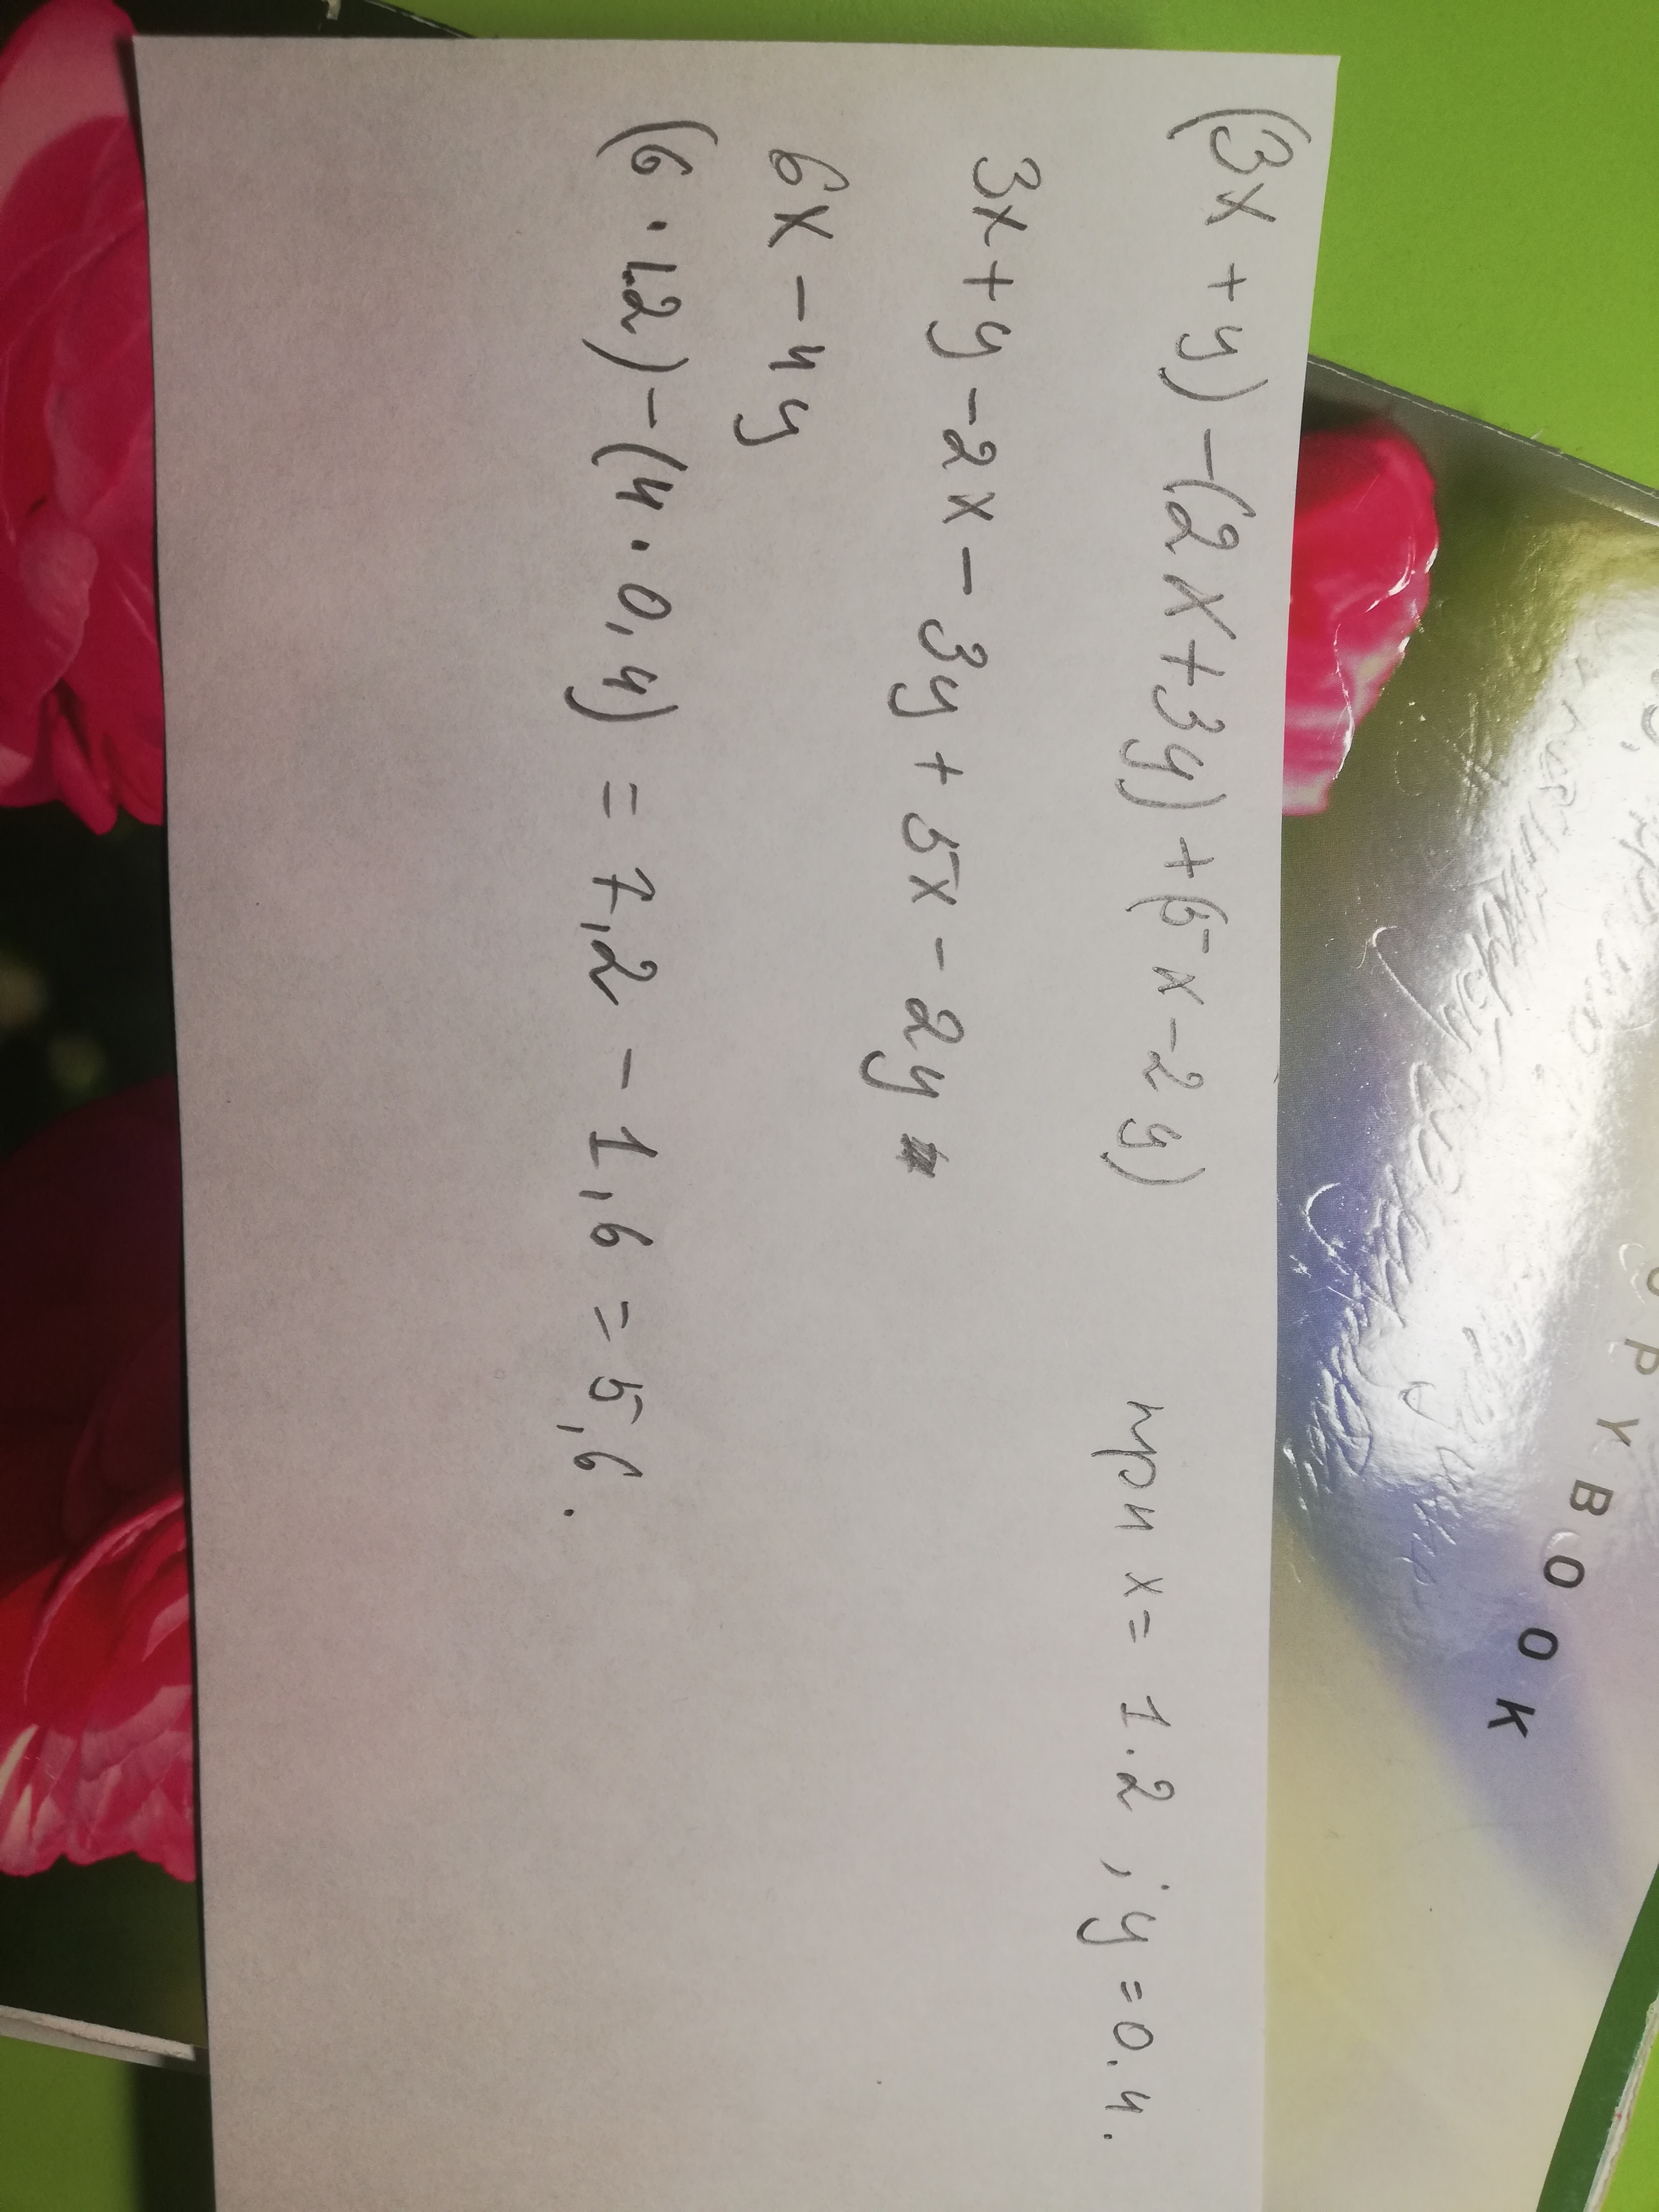 (3x + y) - (2x + 3y) + (5x - 2y) при x = 1.2 ; y = 0.4.
3x + y - 2x - 3y + 5x - 2y
6x - 4y
(6 · 1.2) - (4 · 0,4) = 7,2 - 1,6 = 5,6.
O P Y B O O K